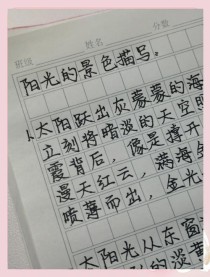 班级 姓名 分数
阳光的景色描写。
1、太阳跃出灰蒙蒙的海
立刻将暗淡的天空照
霞背后，像是撑开
漫天红云，满海金
喷薄而出，金光
太阳光从东窗
的淡黄